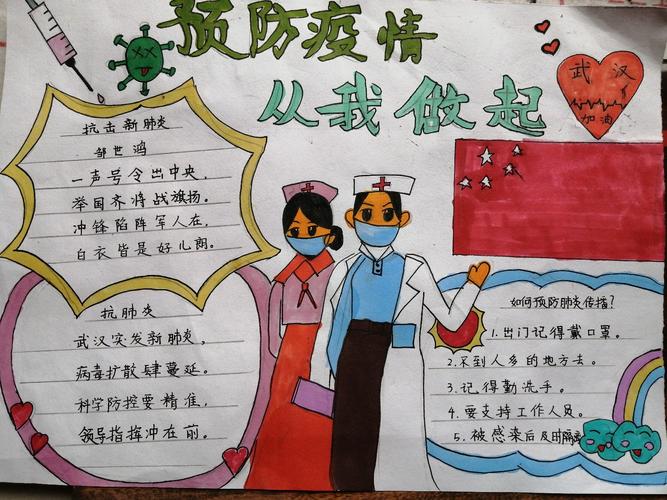 预防疫情
从我做起
武汉
加油
抗击新肺炎
邹世鸿
一声号令出中央，
举国齐将战旗扬。
冲锋陷阵军人在，
白衣皆是好儿郎。
抗肺炎
武汉突发新肺炎，
病毒扩散肆蔓延。
科学防控要精准，
领导指挥冲在前。
如何预防肺炎传播？
1.出门记得戴口罩。
2.不到人多的地方去。
3.记得勤洗手。
4.要支持工作人员。
5.被感染后及时隔离